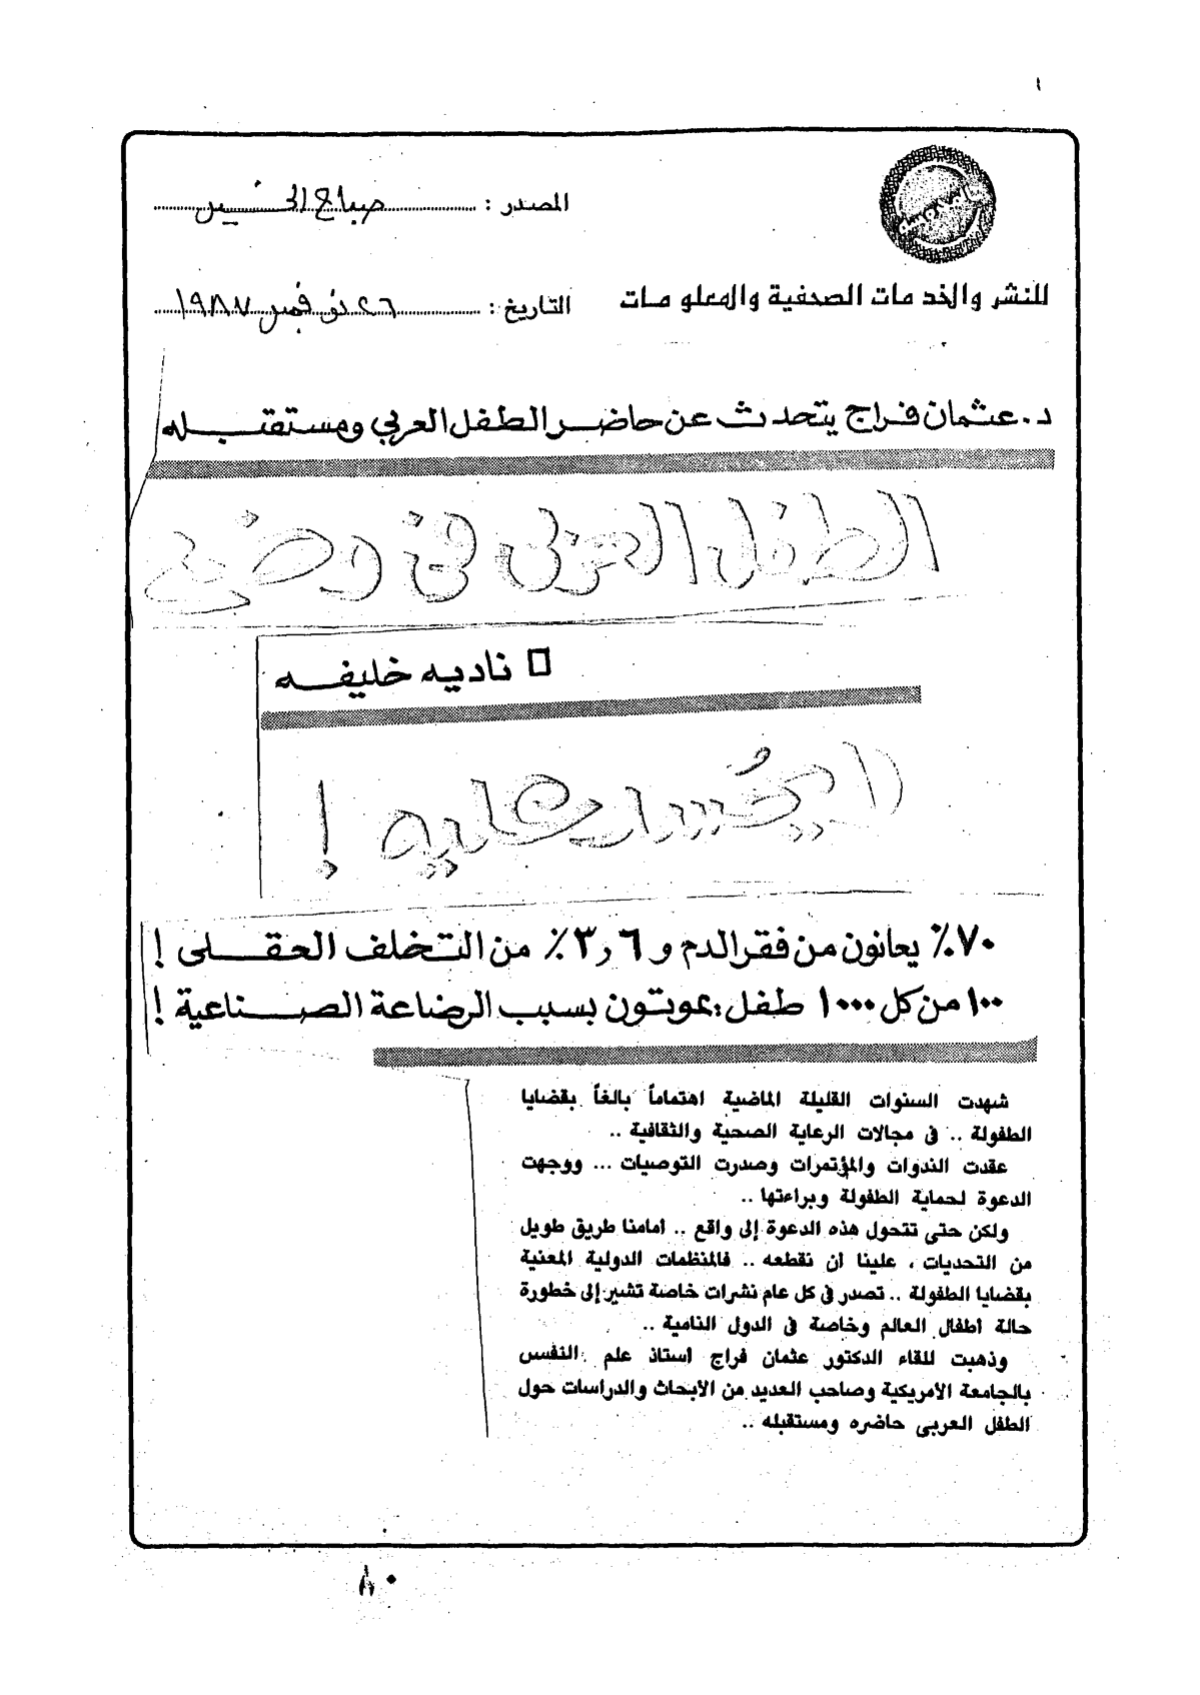 ١
المصدر : صباح الخير
للنشر والخدمات الصحفية والمعلومات
التاريخ : ٢٦ نوفمبر ١٩٨٧
د. عثمان فراج يتحدث عن حاضر الطفل العربي ومستقبله
الطفل العربى فى وضع
□ ناديه خليفه
لا يُحسد عليه !
٧٠٪ يعانون من فقر الدم و ٣,٦٪ من التخلف العقلى !
١٠٠ من كل ١٠٠٠ طفل يموتون بسبب الرضاعة الصناعية !
شهدت السنوات القليلة الماضية اهتماماً بالغاً بقضايا
الطفولة .. فى مجالات الرعاية الصحية والثقافية ..
عقدت الندوات والمؤتمرات وصدرت التوصيات ... ووجهت
الدعوة لحماية الطفولة وبراءتها ..
ولكن حتى تتحول هذه الدعوة إلى واقع .. امامنا طريق طويل
من التحديات ، علينا أن نقطعه .. فالمنظمات الدولية المعنية
بقضايا الطفولة .. تصدر فى كل عام نشرات خاصة تشير إلى خطورة
حالة اطفال العالم وخاصة فى الدول النامية ..
وذهبت للقاء الدكتور عثمان فراج استاذ علم النفس
بالجامعة الأمريكية وصاحب العديد من الأبحاث والدراسات حول
الطفل العربى حاضره ومستقبله ..
٨٠